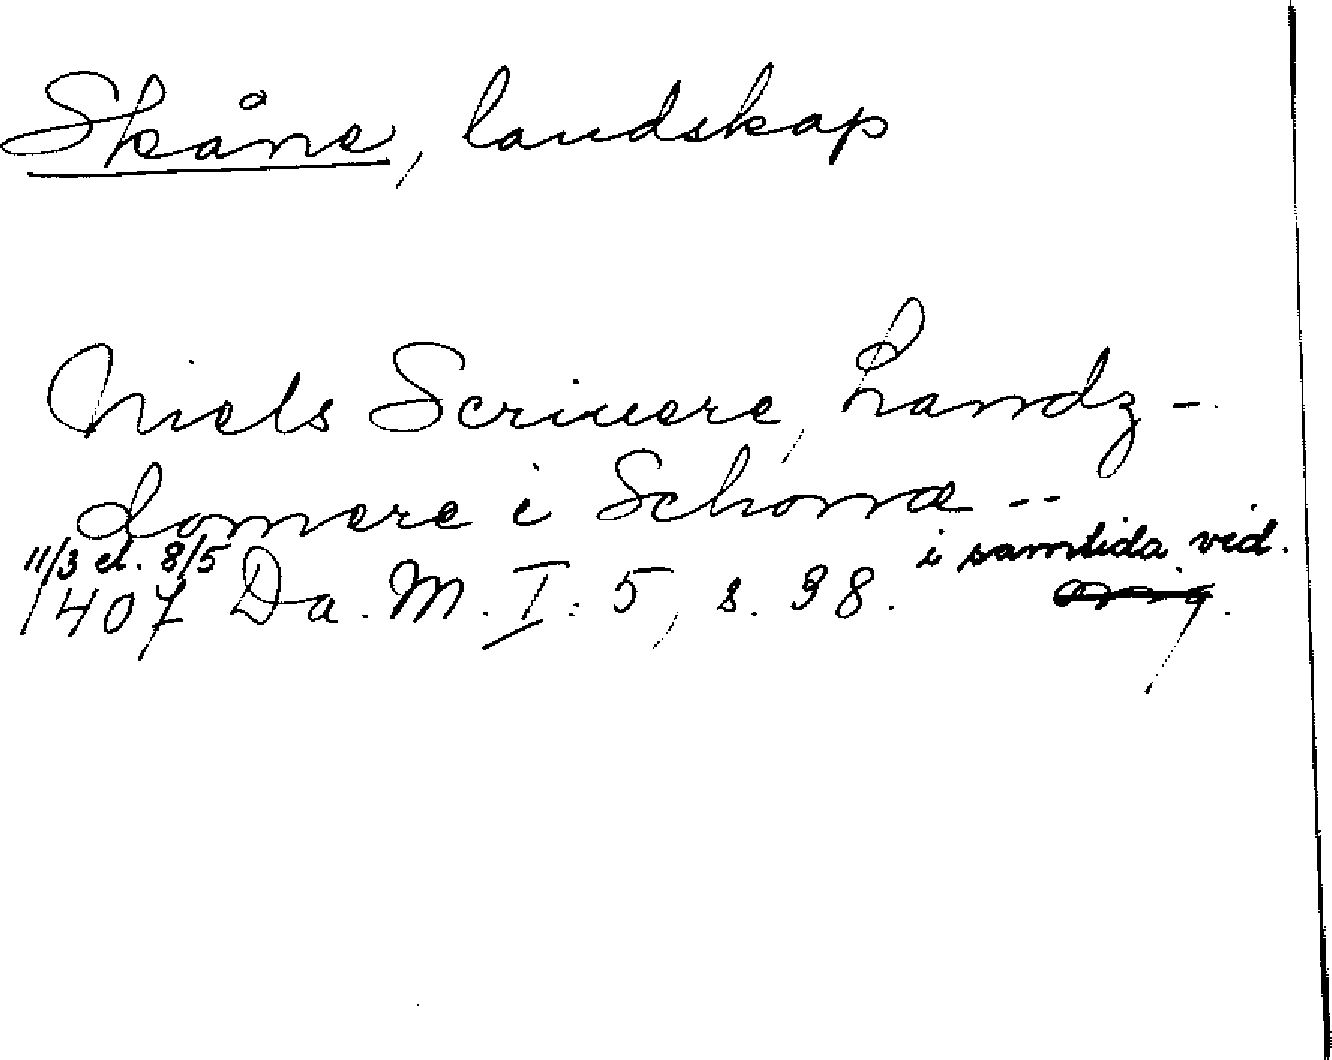 Skåne, landskap
Niels Scriuere, Landz-
domere i Schonæ --
11/3 el. 8/5 i samtida vid.
1407 Da. M. I: 5, s. 98. orig.